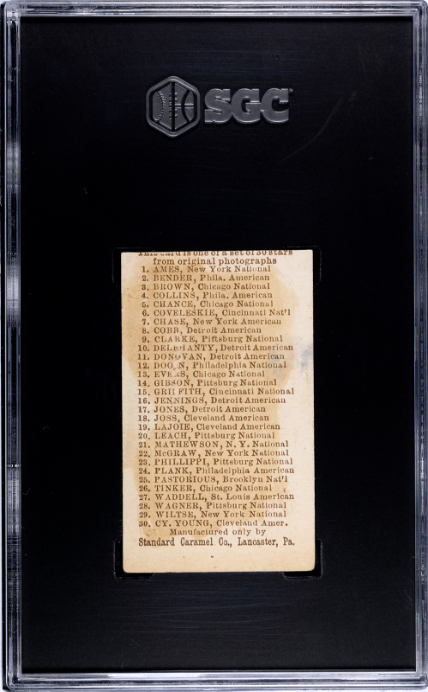 SGC
This card is one of a set of 30 stars
from original photographs
1. AMES, New York National
2. BENDER, Phila. American
3. BROWN, Chicago National
4. COLLINS, Phila. American
5. CHANCE, Chicago National
6. COVELESKIE, Cincinnati Nat'l
7. CHASE, New York American
8. COBB, Detroit American
9. CLARKE, Pittsburg National
10. DELEHANTY, Detroit American
11. DONOVAN, Detroit American
12. DOOIN, Philadelphia National
13. EVERS, Chicago National
14. GIBSON, Pittsburg National
15. GRIFFITH, Cincinnati National
16. JENNINGS, Detroit American
17. JONES, Detroit American
18. JOSS, Cleveland American
19. LAJOIE, Cleveland American
20. LEACH, Pittsburg National
21. MATHEWSON, N. Y. National
22. McGRAW, New York National
23. PHILLIPPI, Pittsburg National
24. PLANK, Philadelphia American
25. PASTORIOUS, Brooklyn Nat'l
26. TINKER, Chicago National
27. WADDELL, St. Louis American
28. WAGNER, Pittsburg National
29. WILTSE, New York National
30. CY. YOUNG, Cleveland Amer.
Manufactured only by
Standard Caramel Co., Lancaster, Pa.